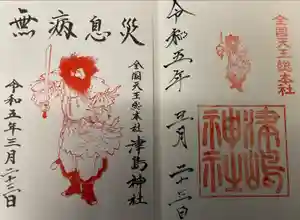 無病息災
全国天王総本社
津島神社
令和五年三月二十三日
全国天王総本社
津嶋神社
令和五年
月二十三日